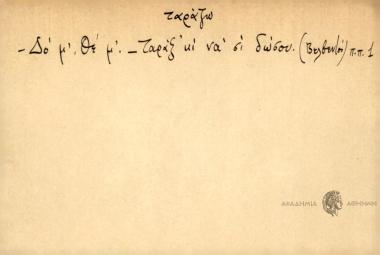 ταράζω
- Δό μ', Θέ μ'. - Ταράξ' κι να σι δώσου. (Βελβενδό) π.π. 1
ΑΚΑΔΗΜΙΑ ΑΘΗΝΩΝ